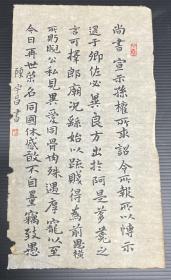 尚書宣示孫權所求詔令所報所以博示
逮于卿佐必冀良方出於阿是芻蕘之
言可擇郎廟況繇始以疏賤得為前恩橫
所眂睨公私見異愛同骨肉殊遇厚寵以至
今日再世榮名同國休慼敢不自量竊致愚
陳宇白書